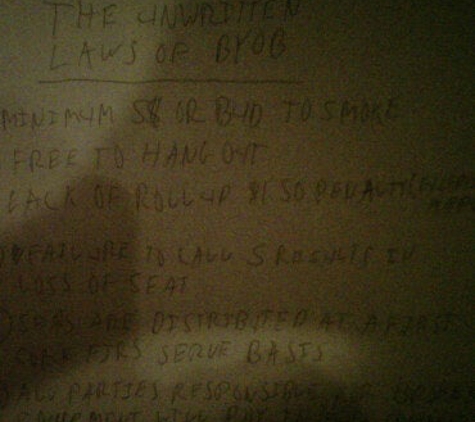 THE UNWRITTEN
LAWS OF BYOB
MINIMUM 5$ OR BUD TO SMOKE
FREE TO HANG OUT
LACK OF ROLL UP $1.50 PENALTY
FAILURE TO CALL 5 RESULTS IN
LOSS OF SEAT
ARE DISTRIBUTED AT A FIRST
COME FIRS SERVE BASIS
ALL PARTIES RESPONSIBLE
WILL PAY